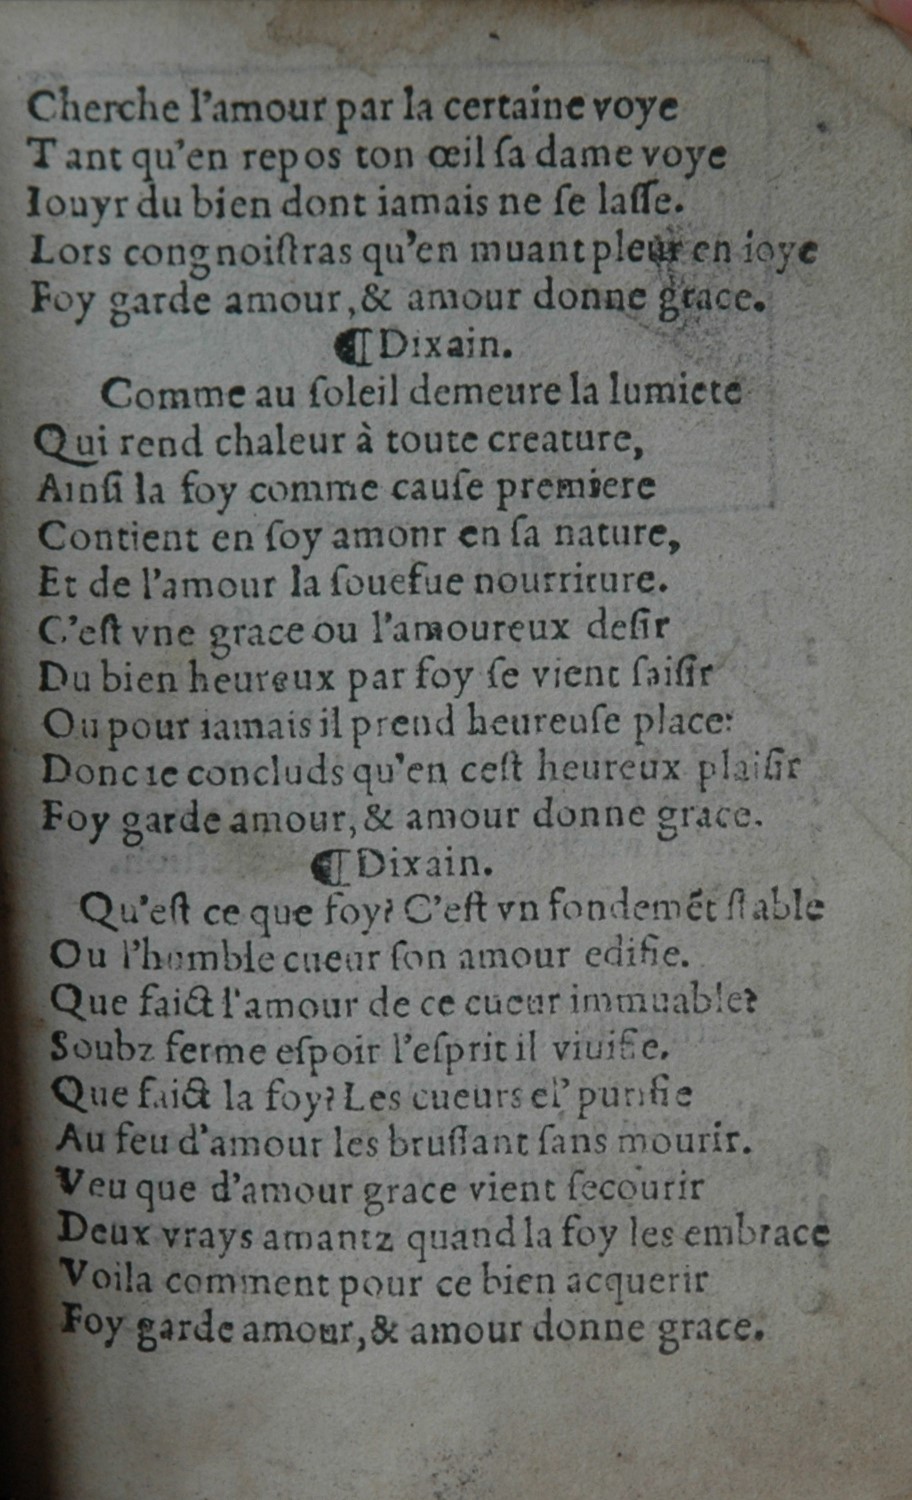 Cherche l'amour par la certaine voye
Tant qu'en repos ton œil ſa dame voye
Iouyr du bien dont iamais ne ſe laſſe.
Lors congnoiſtras qu'en muant pleur en ioye
Foy garde amour, & amour donne grace.
¶ Dixain.
Comme au ſoleil demeure la lumiete
Qui rend chaleur à toute creature,
Ainſi la foy comme cauſe premiere
Contient en ſoy amonr en ſa nature,
Et de l'amour la ſouefue nourriture.
C'eſt vne grace ou l'amoureux deſir
Du bien heureux par foy ſe vient ſaiſir
Ou pour iamais il prend heureuſe place:
Donc ie concluds qu'en ceſt heureux plaiſir
Foy garde amour, & amour donne grace.
¶ Dixain.
Qu'eſt ce que foy? C'eſt vn fondemẽt ſtable
Ou l'humble cueur ſon amour edifie.
Que faict l'amour de ce cueur immuable?
Soubz ferme eſpoir l'eſprit il viuifie.
Que faict la foy? Les cueurs el' purifie
Au feu d'amour les bruſlant ſans mourir.
Veu que d'amour grace vient ſecourir
Deux vrays amantz quand la foy les embrace
Voila comment pour ce bien acquerir
Foy garde amour, & amour donne grace.